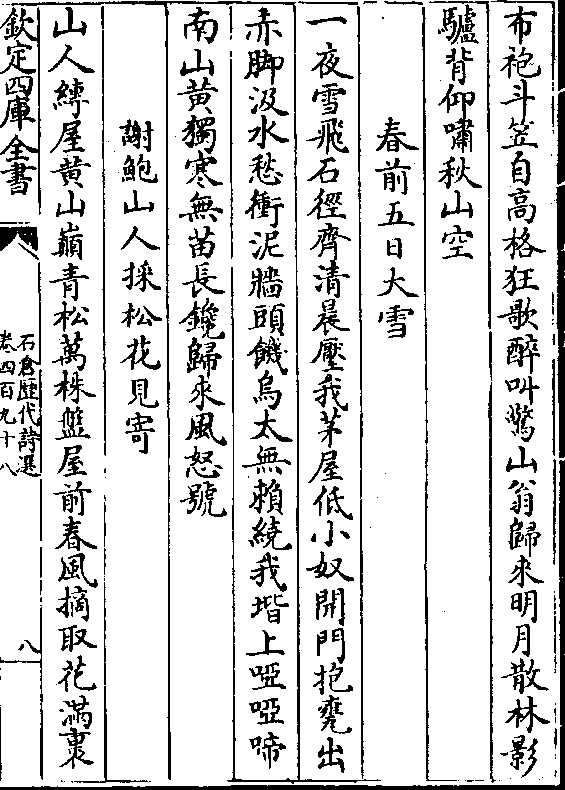 布袍斗笠自高格狂歌醉叫驚山翁歸來明月散林影
驢背仰嘯秋山空
春前五日大雪
一夜雪飛石徑齊清晨壓我茅屋低小奴開門抱甕出
赤脚汲水愁衝泥牆頭饑烏太無賴繞我堦上啞啞啼
南山黄獨寒無苗長鑱歸來風怒號
謝鮑山人採松花見寄
山人縳屋黄山巔青松萬株盤屋前春風摘取花滿裹
欽定四庫全書
石倉歷代詩選
卷四百九十八
八